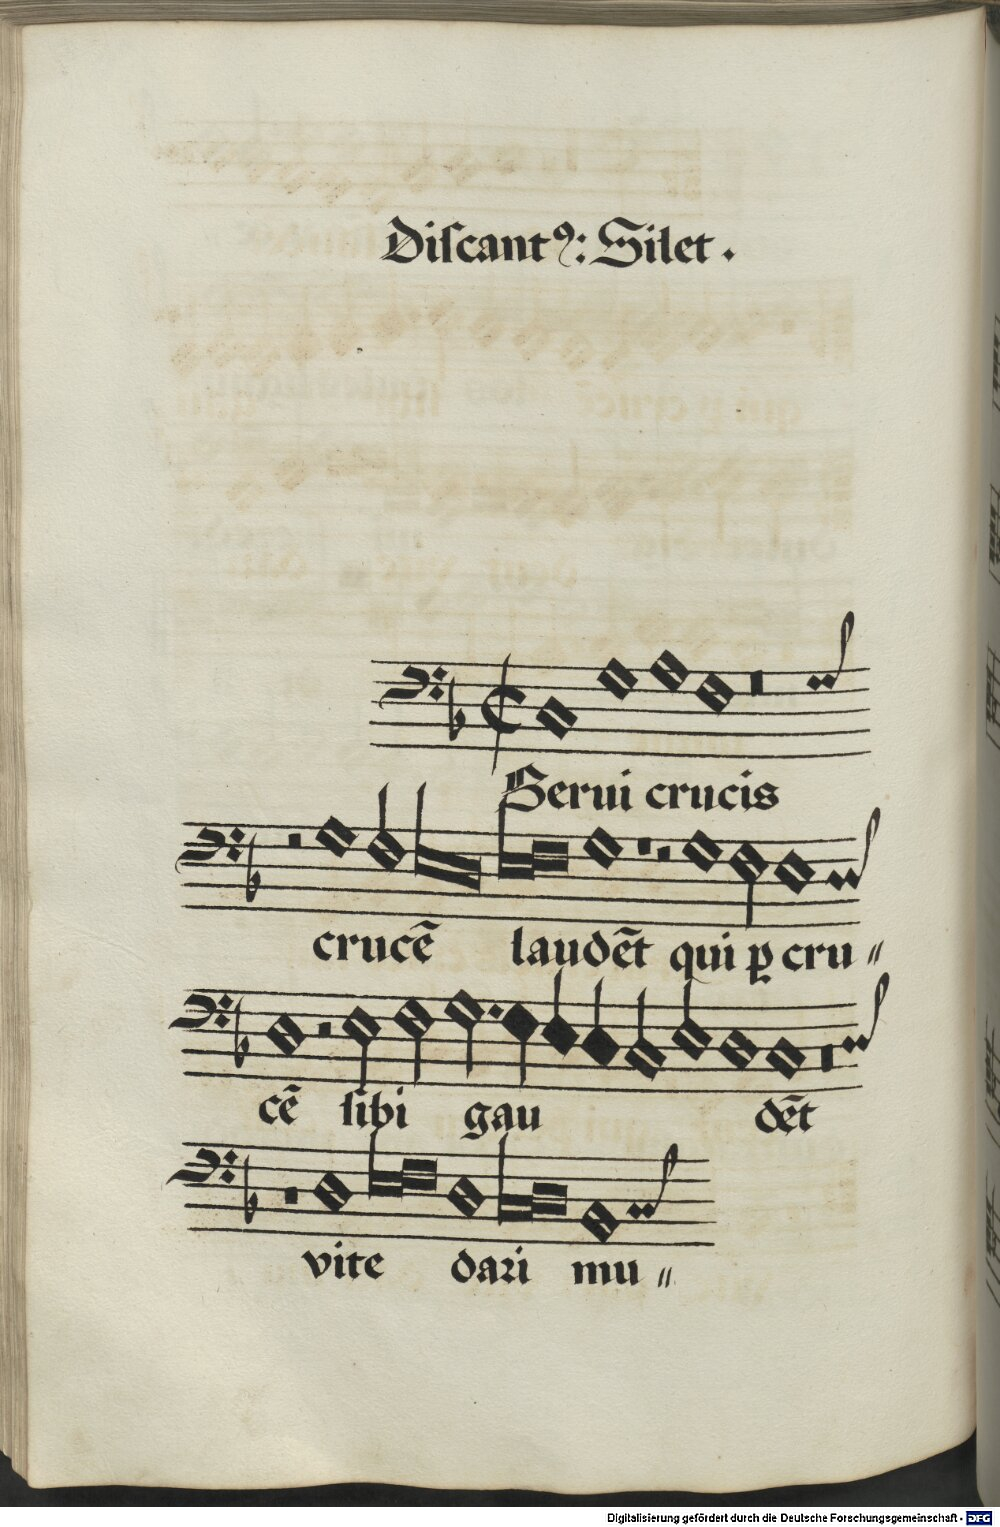 Discantꝰ: Silet.
Serui crucis
crucē laudēt qui ꝑ cru〃
cē sibi gau dēt
vite dari mu〃
Digitalisierung gefördert durch die Deutsche Forschungsgemeinschaft - DFG